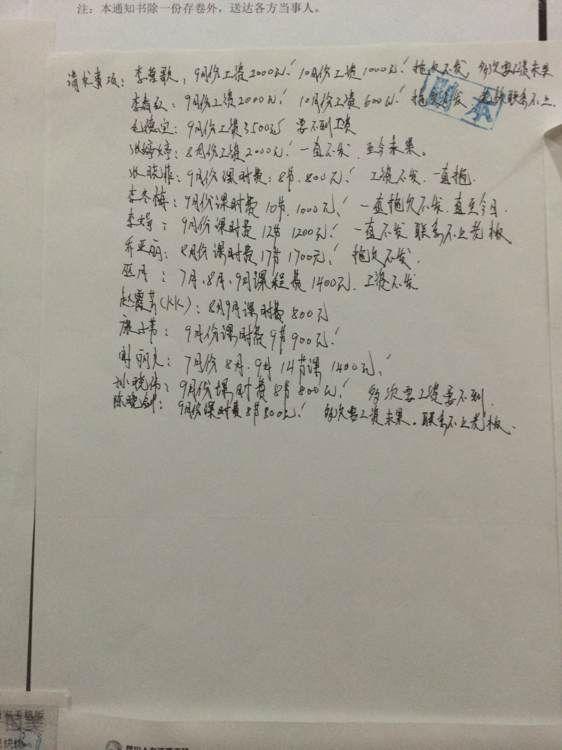 注：本通知书除一份存卷外，送达各方当事人。
请求事项：李 歌，9月份工资2000元！10月份工资1000元！拖欠不发 多次要工资未果
李 9月份工资2000元！10月份工资600元！拖欠不发 联系不上.
副本
毛 宝：9月份工资3500元 要不到工资
张婷婷：8月份工资2000元！一直不发 至今未果。
张晓 ：9月份课时费：8节.800元！工资不发.一直拖.
李冬梅：9月份课时费10节.1000元！一直拖欠不发 直至今日.
李 ：9月份课时费12节1200元！一直不发 联系不上老板
乔亚丽：8月份课时费17节1700元！拖欠不发.
巫月：7月.8月.9月课程费1400元.工资不发
赵霞 (KK)：8月9月课时费800元
康 ：9月份课时费9节900元！
谢丽 ：7月份8月.9月14节课1400元！
孙晓伟：9月份课时费8节800元！多次要工资要不到.
陈晓剑：9月份课时费8节800元！多次要工资未果。联系不上老板.